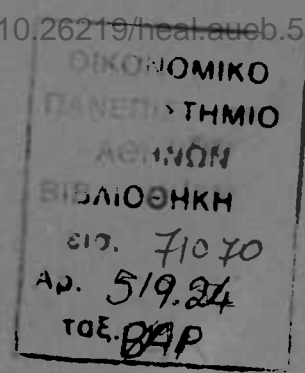 10.26219/heal.aueb.5
ΟΙΚΟΝΟΜΙΚΟ
ΠΑΝΕΠΙΣΤΗΜΙΟ
ΑΘΗΝΩΝ
ΒΙΒΛΙΟΘΗΚΗ
εισ. 71070
Αρ. 519.24
ταξ. ΒΑΡ